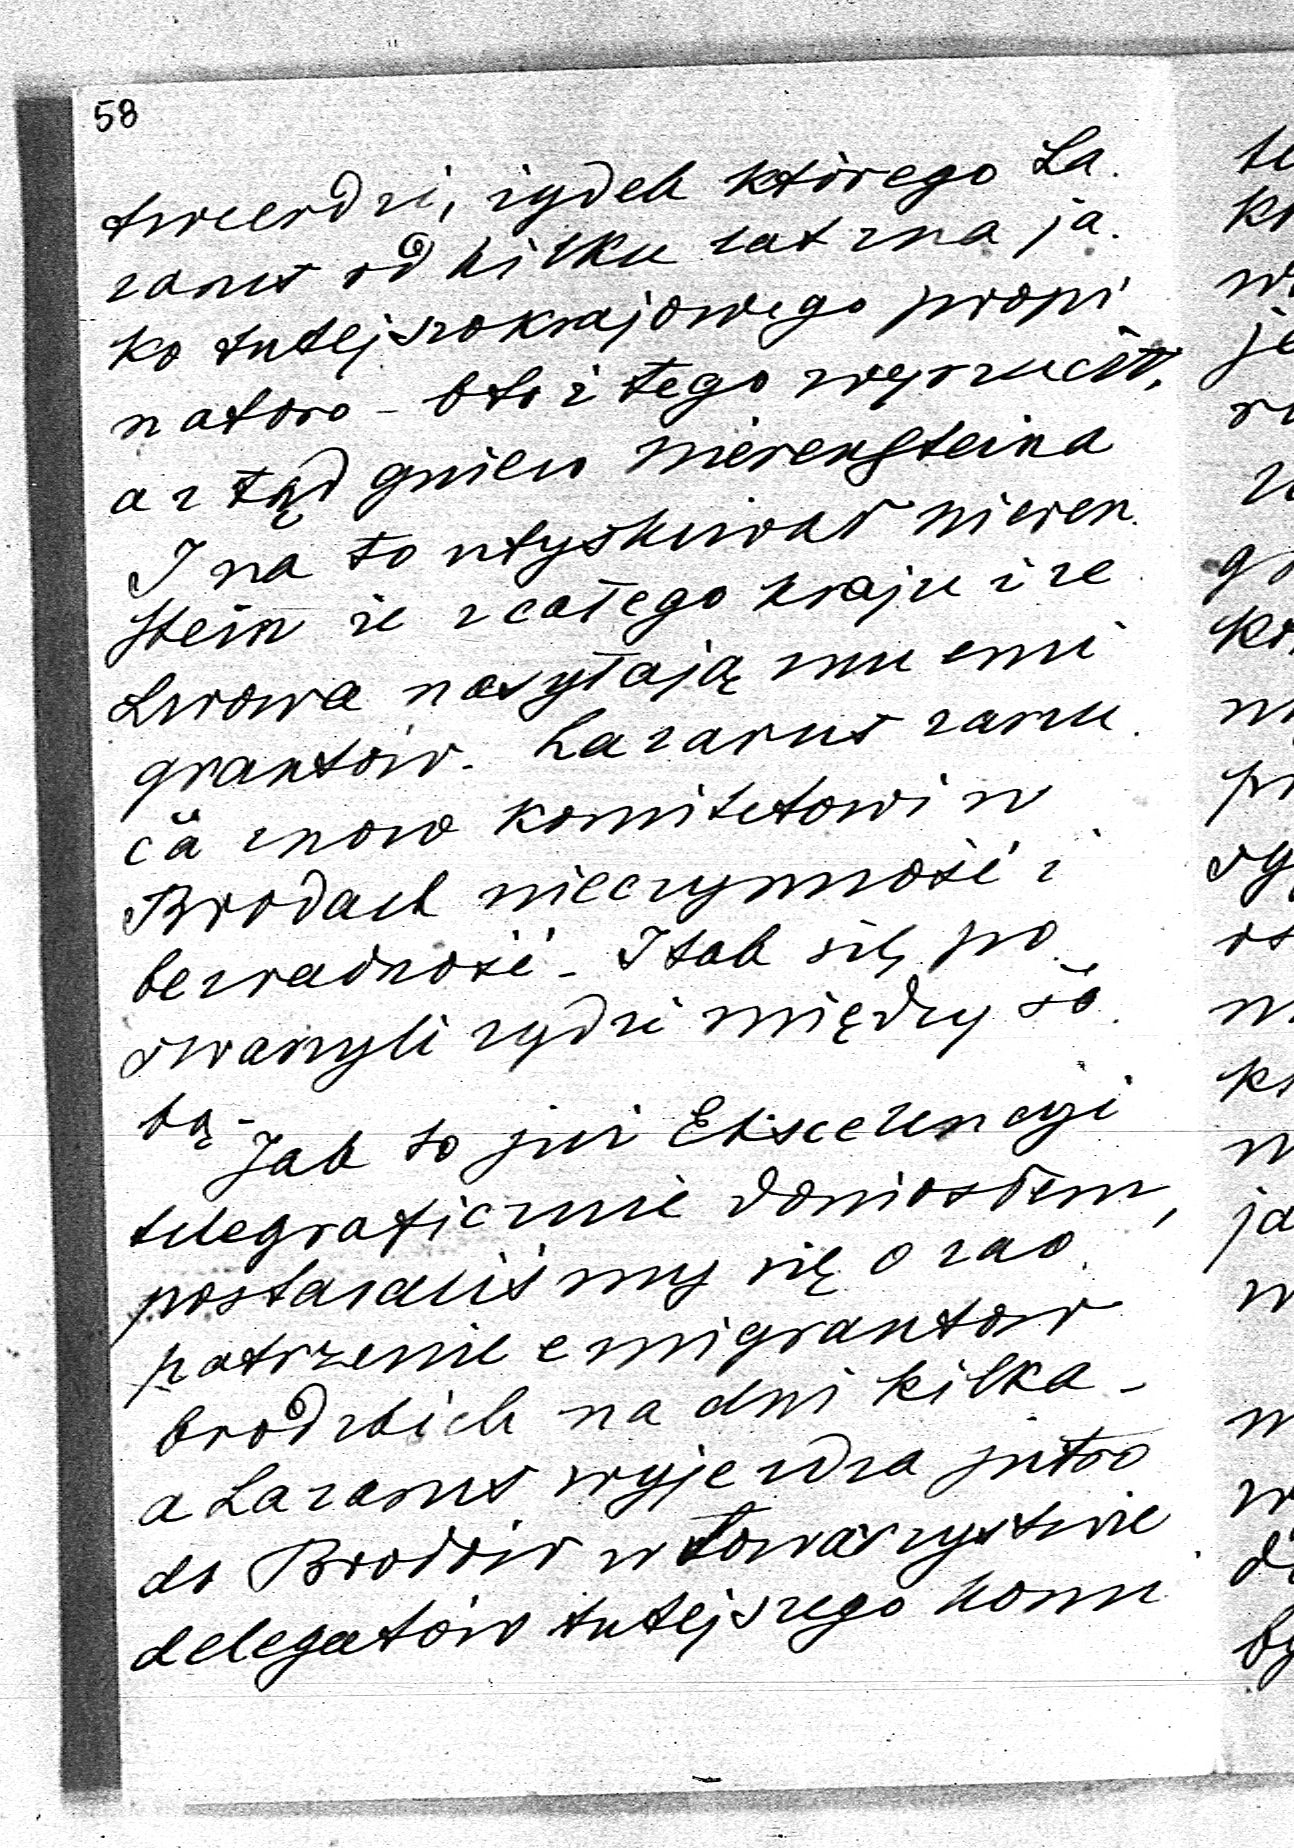 58
twierdzi, żydek którego La
zarus od kilku lat zna ja
ko tutejszokrajowego propi
natora - otoż tego wyrzucił,
a z tąd gniew Nierensteina
I na to utyskiwał Nieren
stein że z całego kraju i ze
Lwowa nasyłają mu emi
grantów. Lazarus zarzu
ca znow komitetowi w
Brodach nieczynność i
bezradność - I tak się po
swarzyli żydzi między so
bą -
Jak to już Ekscelencyi
telegraficznie doniosłem,
postaraliśmy się o zao
patrzenie emigrantów
brodzkich na dni kilka -
a Lazarus wyjeżdża jutro
do Brodów w towarzystwie
delegatów tutejszego komi